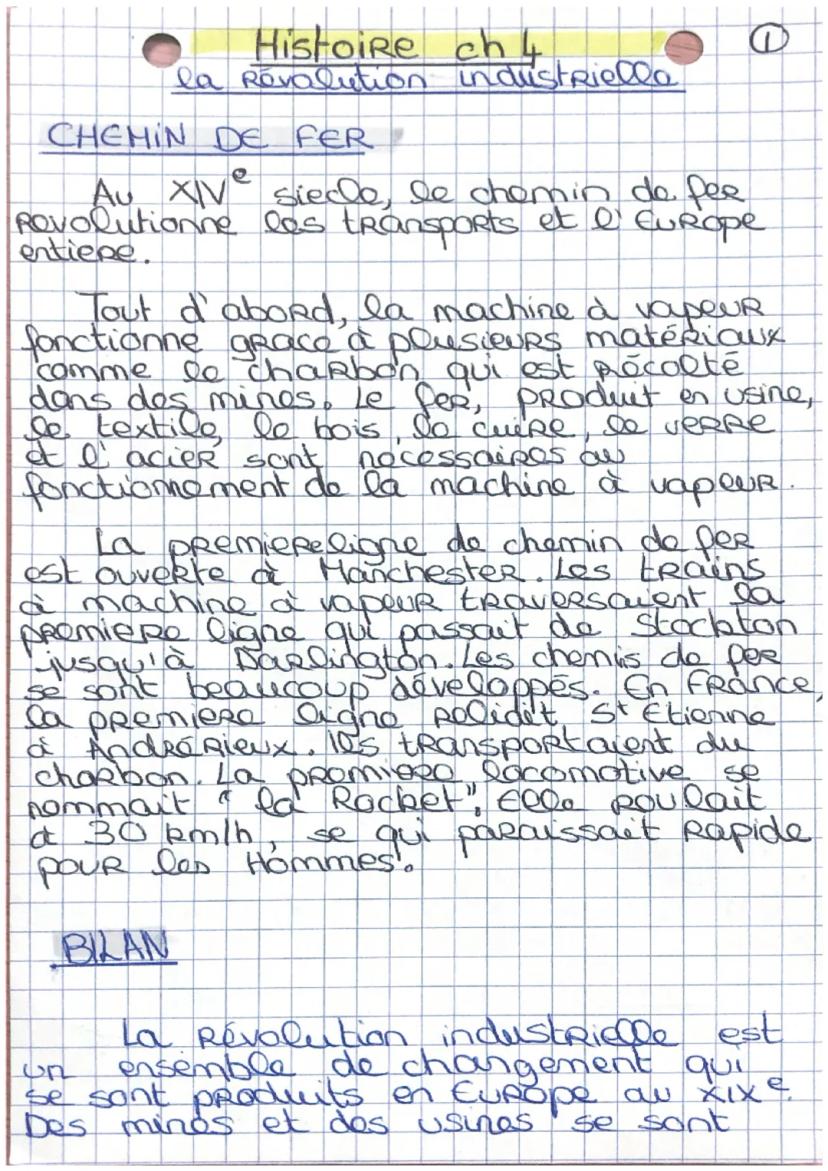 Histoire ch 4
①
la Révolution industrielle
CHEMIN DE FER
Au XIVe siecle, le chemin de fer
Revolutionne les transports et l'Europe
entiere.
Tout d'abord, la machine à vapeur
fonctionne grace à plusieurs matériaux
comme le charbon qui est récolté
dans des mines. Le fer, produit en usine,
le textile, le bois, le cuire, le verre
et l'acier sont necessaires au
fonctionnement de la machine à vapeur.
La premiere ligne de chemin de fer
est ouverte à Manchester. Les trains
à machine à vapeur traversaient la
premiere ligne qui passait de Stockton
jusqu'à Darlington. Les chemis de fer
se sont beaucoup développés. En France,
la premiere ligne reliait St Etienne
à Andrérieux. Ils transportaient du
charbon. La premiere locomotive se
nommait "la Rocket", Elle roulait
à 30 km/h, se qui paraissait rapide
pour les Hommes.
BILAN
La Révolution industrielle est
un ensemble de changement qui
se sont produits en Europe au XIXe.
Des mines et des usines se sont